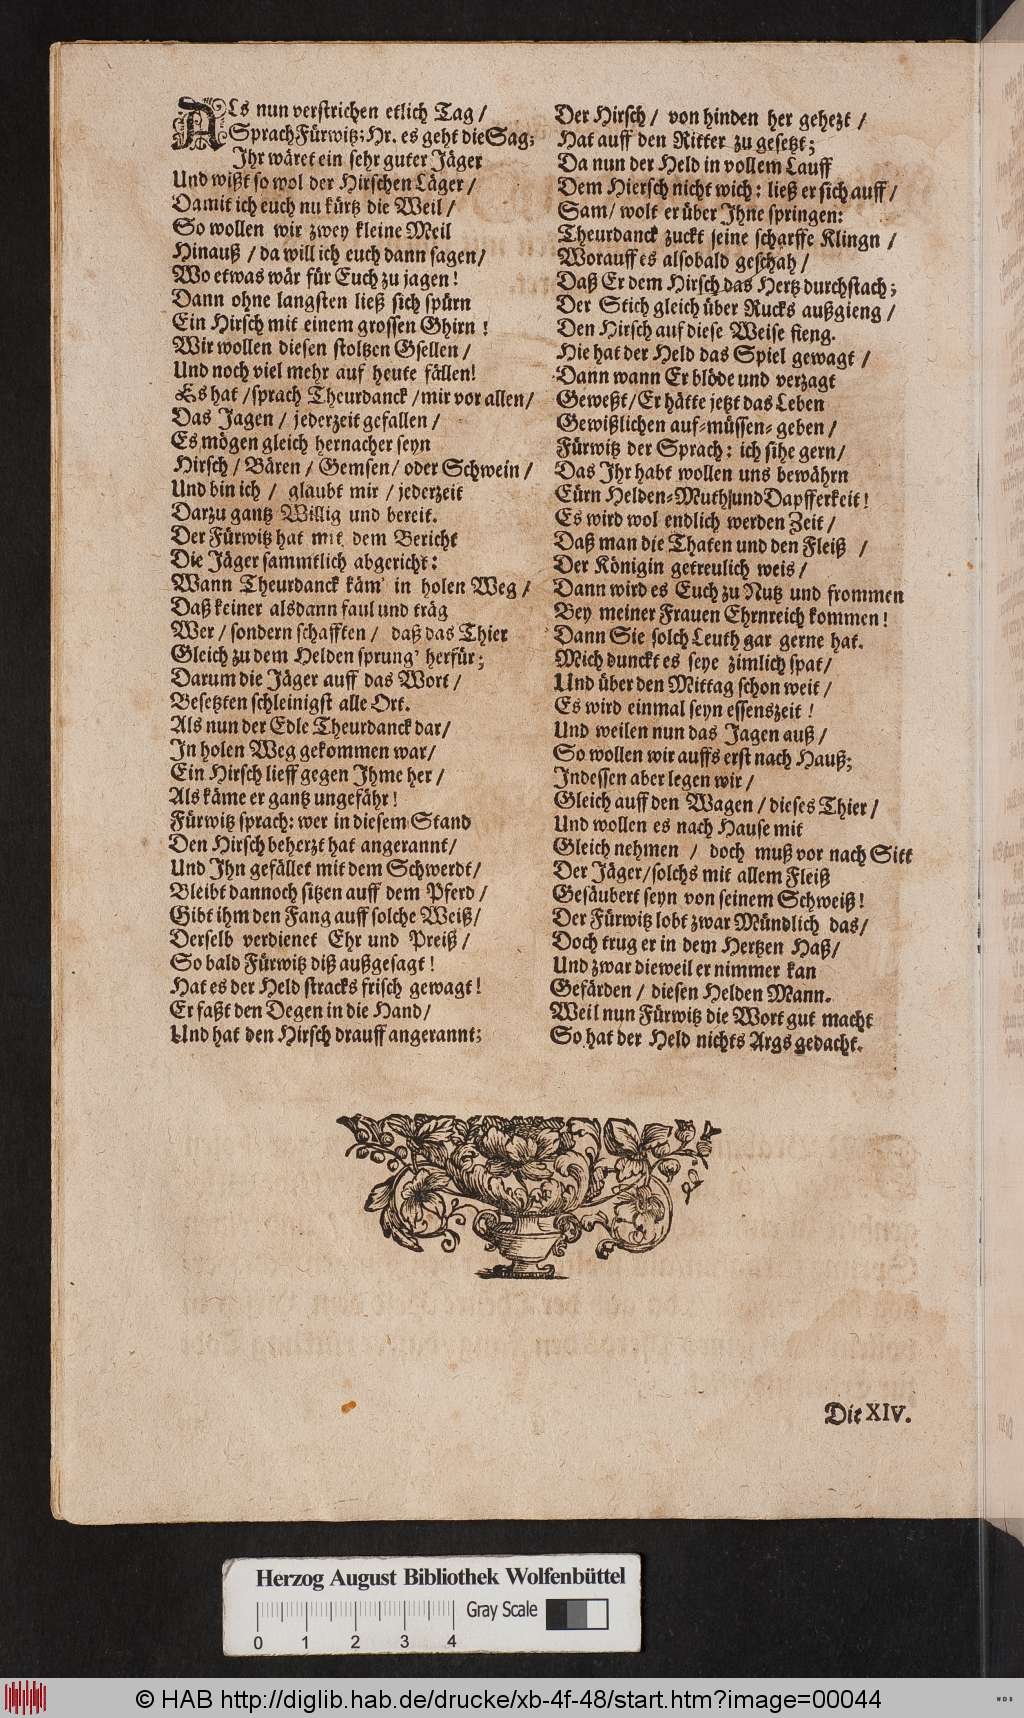 ALs nun verstrichen etlich Tag /
Sprach Fürwitz; Hr. es geht die Sag;
Ihr wäret ein sehr guter Jäger
Und wißt so wol der Hirschen Läger /
Damit ich euch nu kürtz die Weil /
So wollen wir zwey kleine Meil
Hinauß / da will ich euch dann sagen /
Wo etwas wär für Euch zu jagen!
Dann ohne langsten ließ sich spürn
Ein Hirsch mit einem grossen Ghirn!
Wir wollen diesen stoltzen Gsellen /
Und noch viel mehr auf heute fällen!
Es hat / sprach Theurdanck / mir vor allen /
Das Jagen / jederzeit gefallen /
Es mögen gleich hernacher seyn
Hirsch / Bären / Gemsen / oder Schwein /
Und bin ich / glaubt mir / jederzeit
Darzu gantz Willig und bereit.
Der Fürwitz hat mit dem Bericht
Die Jäger sammtlich abgericht:
Wann Theurdanck käm' in holen Weg /
Daß keiner alsdann faul und träg
Wer / sondern schafften / daß das Thier
Gleich zu dem Helden sprung' herfür;
Darum die Jäger auff das Wort /
Besetzten schleinigst alle Ort.
Als nun der Edle Theurdanck dar /
In holen Weg gekommen war /
Ein Hirsch lieff gegen Ihme her /
Als käme er gantz ungefähr!
Fürwitz sprach: wer in diesem Stand
Den Hirsch beherzt hat angerannt /
Und Ihn gefället mit dem Schwerdt /
Bleibt dannoch sitzen auff dem Pferd /
Gibt ihm den Fang auff solche Weiß /
Derselb verdienet Ehr und Preiß /
So bald Fürwitz diß außgesagt!
Hat es der Held stracks frisch gewagt!
Er faßt den Degen in die Hand /
Und hat den Hirsch drauff angerannt;
Der Hirsch / von hinden her gehezt /
Hat auff den Ritter zu gesetzt;
Da nun der Held in vollem Lauff
Dem Hiersch nicht wich: ließ er sich auff /
Sam / wolt er über Ihne springen:
Theurdanck zuckt seine scharffe Klingn /
Worauff es alsobald geschah /
Daß Er dem Hirsch das Hertz durchstach;
Der Stich gleich über Rucks außgieng /
Den Hirsch auf diese Weise fieng.
Hie hat der Held das Spiel gewagt /
Dann wann Er blöde und verzagt
Geweßt / Er hätte jetzt das Leben
Gewißlichen auf-müssen-geben /
Fürwitz der Sprach: ich sihe gern /
Das Ihr habt wollen uns bewährn
Eürn Helden-Muth / und Dapfferkeit!
Es wird wol endlich werden Zeit /
Daß man die Thaten und den Fleiß /
Der Königin getreulich weis /
Dann wird es Euch zu Nutz und frommen
Bey meiner Frauen Ehrnreich kommen!
Dann Sie solch Leuth gar gerne hat.
Mich dunckt es seye zimlich spat /
Und über den Mittag schon weit /
Es wird einmal seyn essenszeit!
Und weilen nun das Jagen auß /
So wollen wir auffs erst nach Hauß;
Indessen aber legen wir /
Gleich auff den Wagen / dieses Thier /
Und wollen es nach Hause mit
Gleich nehmen / doch muß vor nach Sitt
Der Jäger / solchs mit allem Fleiß
Gesäubert seyn von seinem Schweiß!
Der Fürwitz lobt zwar Mündlich das /
Doch trug er in dem Hertzen Haß /
Und zwar dieweil er nimmer kan
Gefärden / diesen Helden Mann.
Weil nun Fürwitz die Wort gut macht
So hat der Held nichts Args gedacht.
Die XIV.
Herzog August Bibliothek Wolfenbüttel
Gray Scale
0 1 2 3 4
© HAB http://diglib.hab.de/drucke/xb-4f-48/start.htm?image=00044